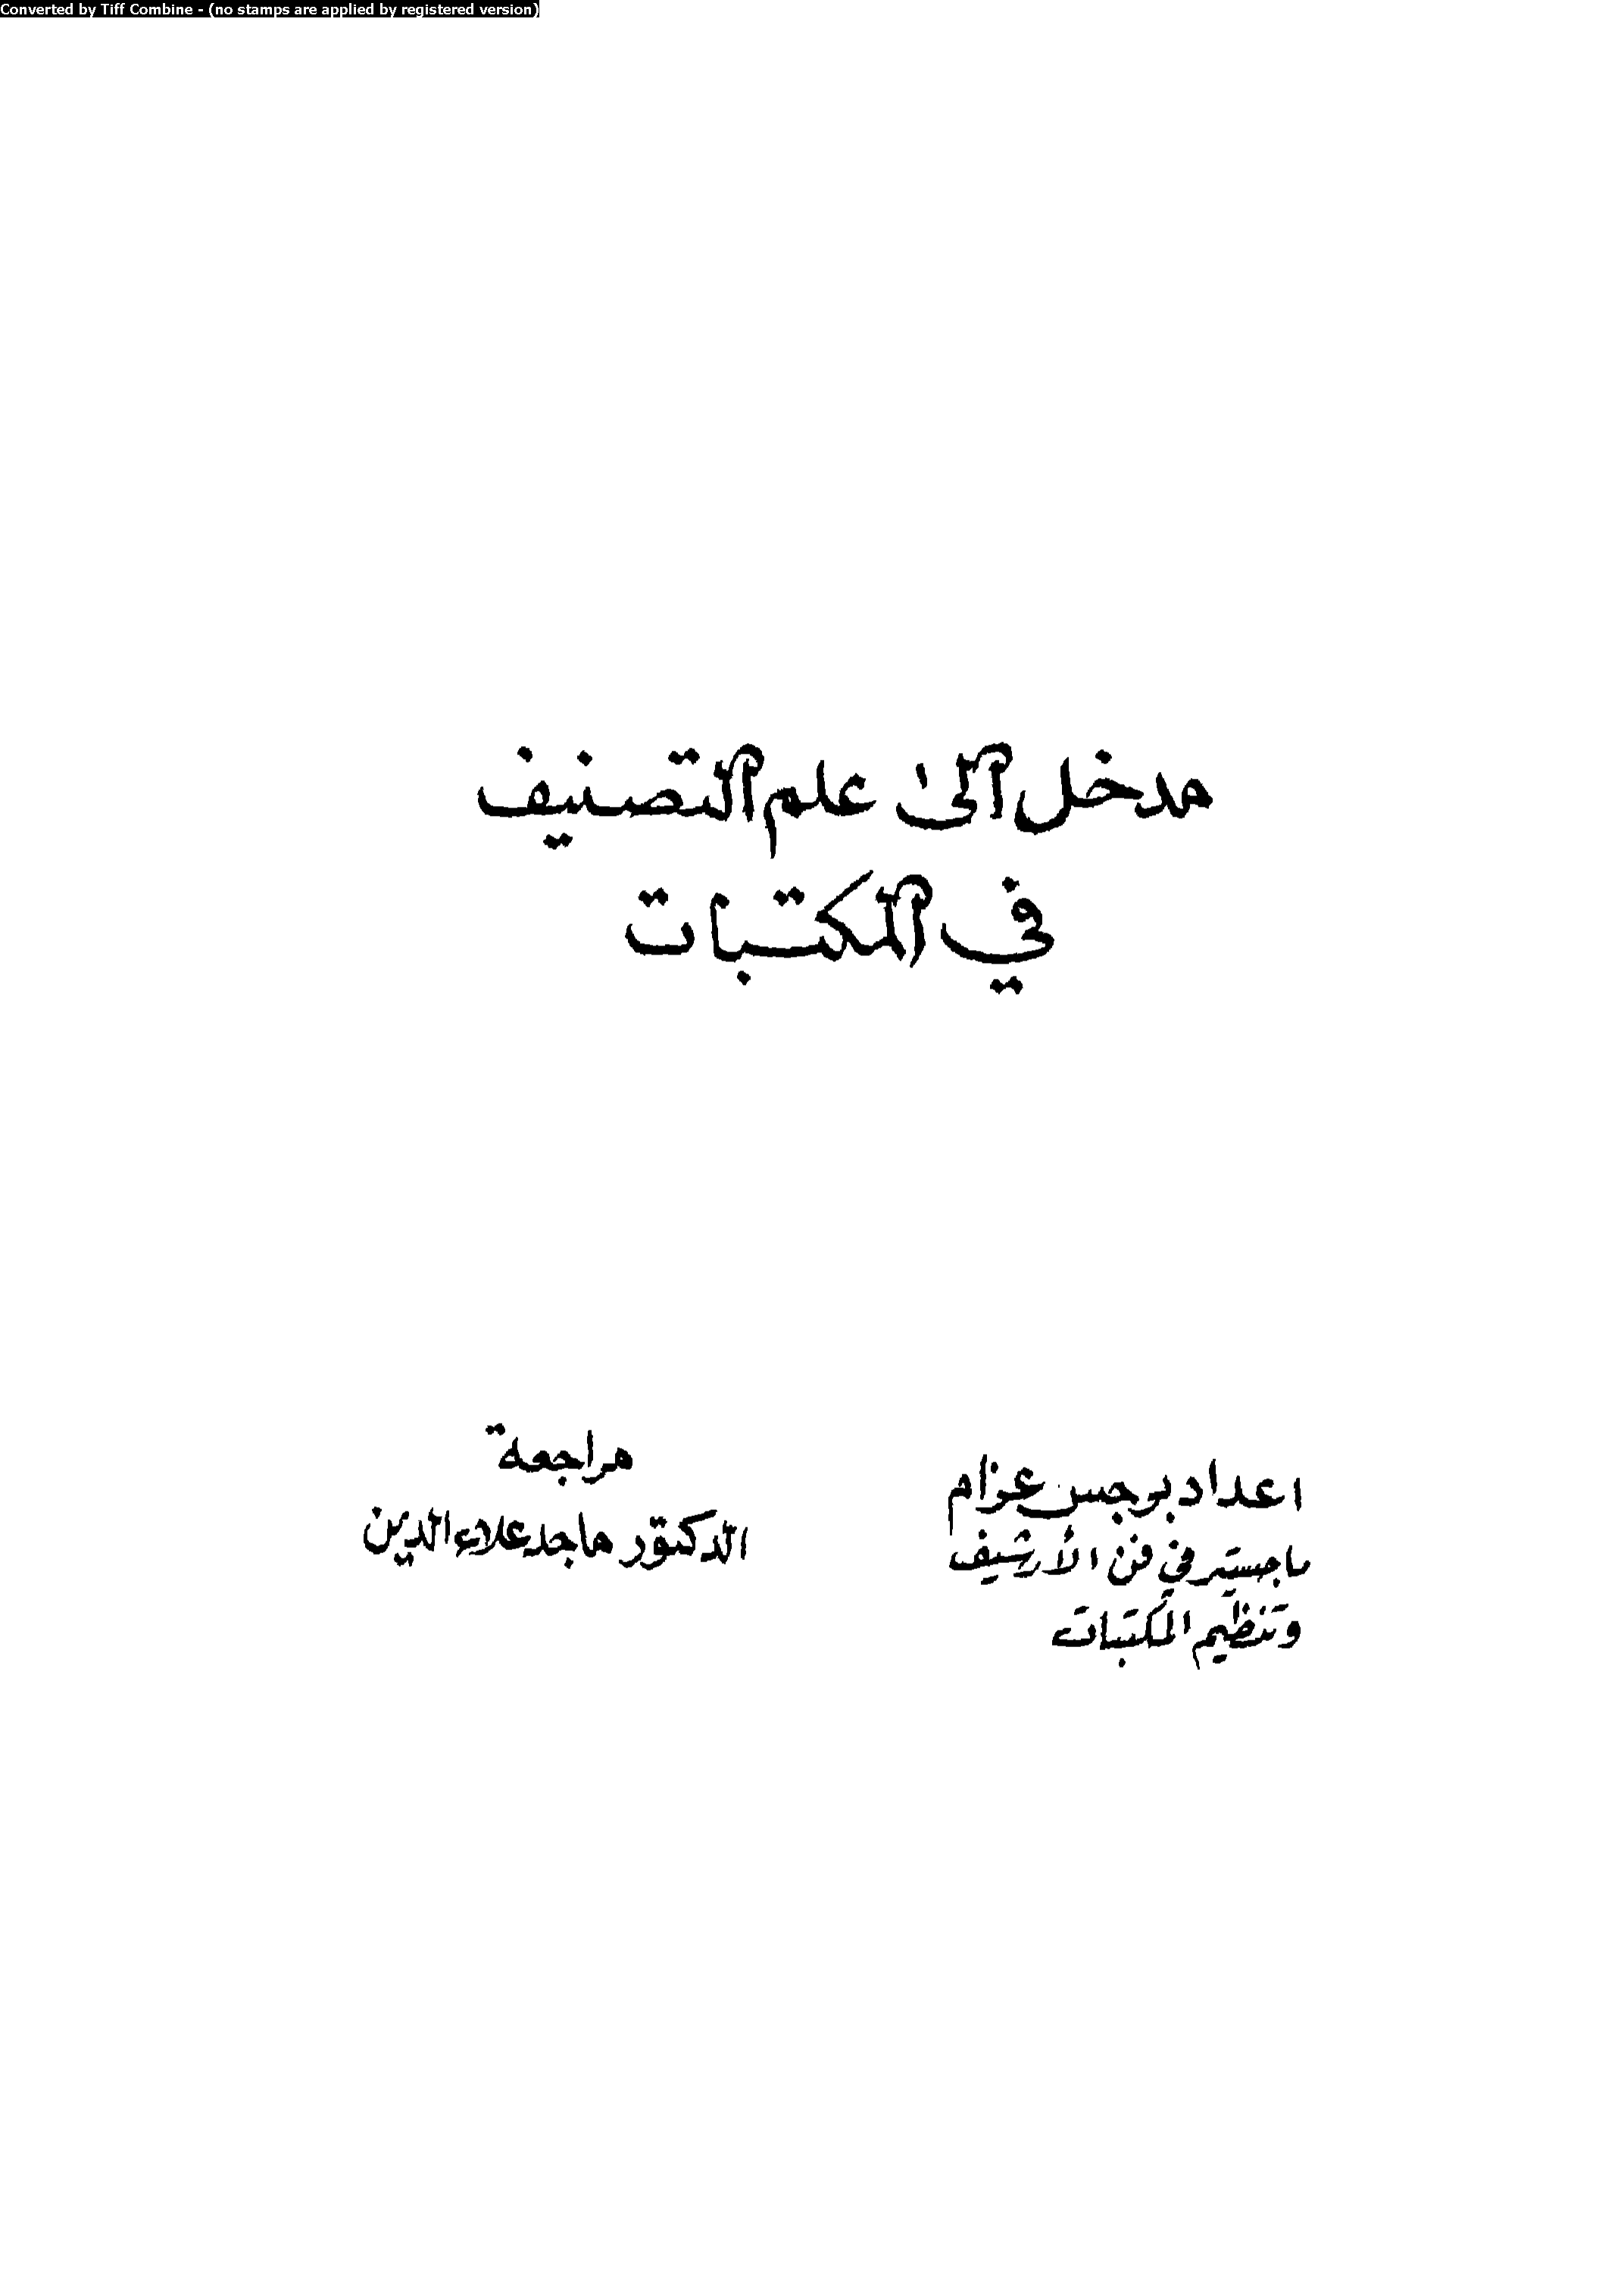 Converted by Tiff Combine - (no stamps are applied by registered version)
مدخل الى علم التصنيف
في المكتبات
اعداد برجس عزام
ماجستير في فن الأرشيف
وتنظيم المكتبات
مراجعة
الدكتور ماجد علاء الدين